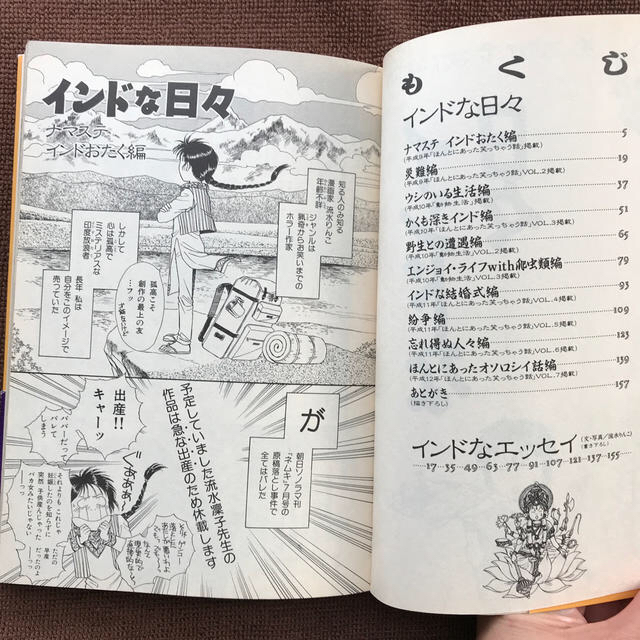 もくじ
インドな日々
ナマステ インドおたく編 5
(平成9年「ほんとにあった笑っちゃう話」掲載)
災難編 19
(平成9年「ほんとにあった笑っちゃう話」VOL.2掲載)
ウシのいる生活編 37
(平成10年「動物生活」掲載)
かくも深きインド編 51
(平成10年「ほんとにあった笑っちゃう話」VOL.3掲載)
野生との遭遇編 65
(平成10年「動物生活」VOL.2掲載)
エンジョイ・ライフwith爬虫類編 79
(平成10年「動物生活」VOL.3掲載)
インドな結婚式編 93
(平成11年「ほんとにあった笑っちゃう話」VOL.4掲載)
紛争編 109
(平成11年「ほんとにあった笑っちゃう話」VOL.5掲載)
忘れ得ぬ人々編 123
(平成11年「ほんとにあった笑っちゃう話」VOL.6掲載)
ほんとにあったオソロシイ話編 139
(平成12年「ほんとにあった笑っちゃう話」VOL.7掲載)
あとがき 157
(描き下ろし)
インドなエッセイ
(文・写真/流水りんこ)
(書き下ろし)
17. 35. 49. 63. 77. 91. 107. 121. 137. 155
インドな日々
ナマステ
インドおたく編
知る人のみ知る
漫画家 流水りんこ
年齢不詳
ジャンルは
猟奇からお笑いまでの
ホラー作家
しかして
心は孤高で
ミステリアスな
印度放浪者
孤高こそ
創作の最上の友
…フッ
長年 私は
自分をこのイメージで
売っていた
が
朝日ソノラマ刊
「ネムキ」7月号の
原稿落とし事件で
全てはバレた
予定していました流水凜子先生の
作品は急な出産のため休載します
出産!!
キャーッ
ババーだって
バレて
しまう
それよりも これじゃ
妊娠したのを知らずに
突然 子供産んじゃった
バカ女みたいじゃない
ーっっ
ただの
早産
だったのよ